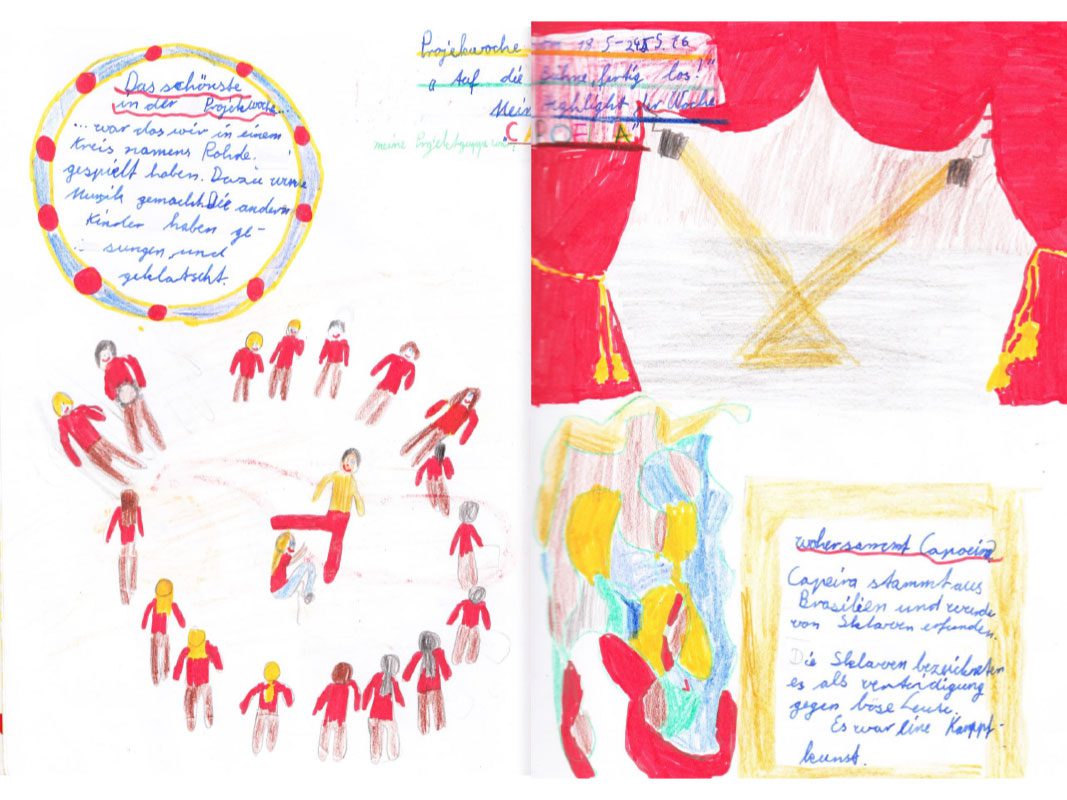 Das schönste
in der Projektwoche...
... war das wir in einem
Kreis namens Rohde
gespielt haben. Dazu
Musik gemacht. Die andern
Kinder haben ge-
sungen und
geklatscht.
Projektwoche 19.5-24.5.
"Auf die Bühne, fertig los!"
Mein Highlight zur Woche
meine Projektgruppe war
CAPOEIRA
wohersammt Capoeira?
Capeira stammt aus
Brasilien und wurde
von Sklaven erfunden.
Die Sklaven bezeichneten
es als verteidigung
gegen böse Leute.
Es war eine Kampf-
kunst.